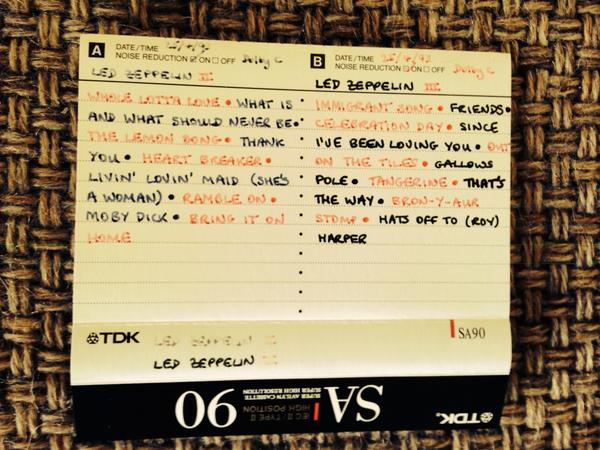 A DATE/TIME
NOISE REDUCTION ☑ ON ☐ OFF Dolby C
LED ZEPPELIN II
WHOLE LOTTA LOVE • WHAT IS
AND WHAT SHOULD NEVER BE •
THE LEMON SONG • THANK
YOU • HEART BREAKER •
LIVIN' LOVIN' MAID (SHE'S
A WOMAN) • RAMBLE ON •
MOBY DICK • BRING IT ON
HOME
B DATE/TIME
NOISE REDUCTION ☑ ON ☐ OFF Dolby C
LED ZEPPELIN III
IMMIGRANT SONG • FRIENDS •
CELEBRATION DAY • SINCE
I'VE BEEN LOVING YOU • OUT
ON THE TILES • GALLOWS
POLE • TANGERINE • THAT'S
THE WAY • BRON-Y-AUR
STOMP • HATS OFF TO (ROY)
HARPER
TDK LED ZEPPELIN
LED ZEPPELIN
SA90
SA 90
IEC II / TYPE II
HIGH POSITION
SUPER AVILYN CASSETTE
SUPER HIGH RESOLUTION
TDK.